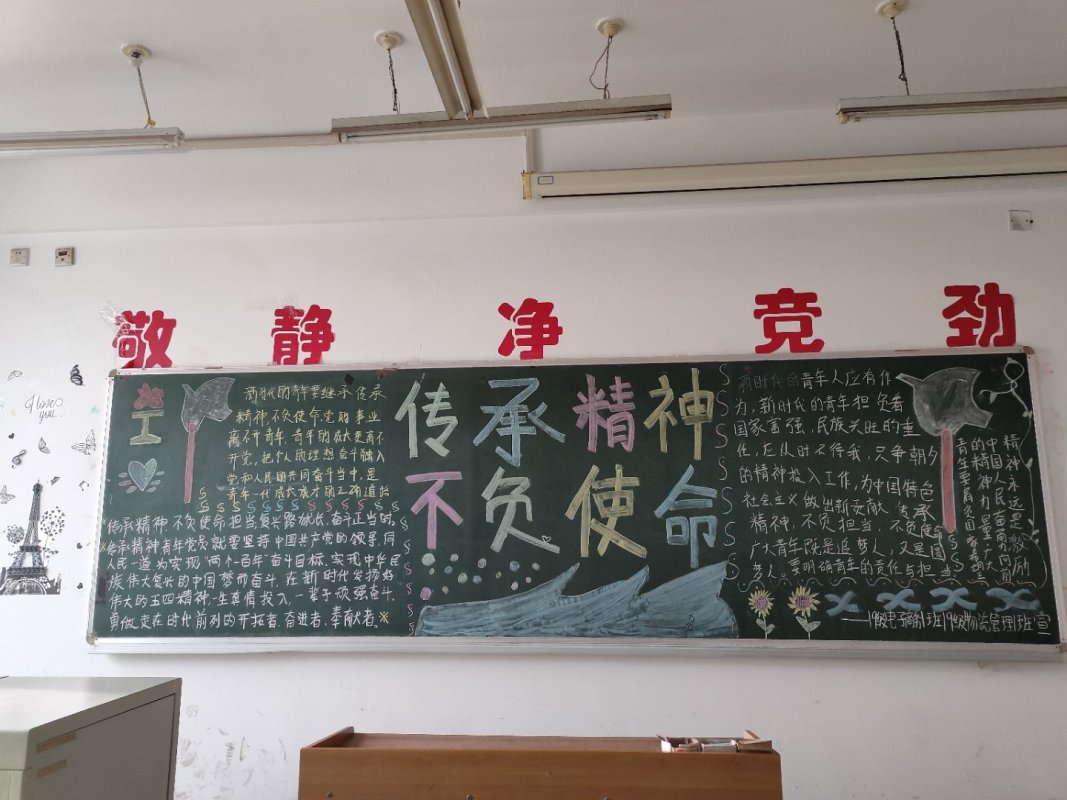 敬 静 净 竞 劲
I loves
you...
新时代的青年要继承传承
精神,不负使命党的事业
离不开青年,青年的成长更离不
开党,把个人的理想奋斗融入
党和人民的共同奋斗当中,是
青年一代成长成才的正确道路
传承精神 不负使命 担当复兴路城长,奋斗正当时,
传承精神青年党员就要坚持中国共产党的领导,同
人民一道为实现"两个一百年"奋斗目标,实现中华民
族伟大复兴的中国梦而奋斗,在新时代发扬好
伟大的五四精神,一生真情投入,一辈子顽强奋斗,
勇做走在时代前列的开拓者、奋进者、奉献者
传承精神
不负使命
新时代的青年人应有作
为,新时代的青年担负着
国家富强、民族兴旺的重
任,在从时不待我,只争朝夕
的精神投入工作,为中国特色
社会主义做出新贡献 传承
精神,不负担当,不负使命
广大青年既是追梦人,又是圆
梦人,要明确青年的责任与担当
精神永远是激励
中国人民奋勇向前
的精神力量,广大
青年要肩负
19级电子商务班19级物流管理班宣